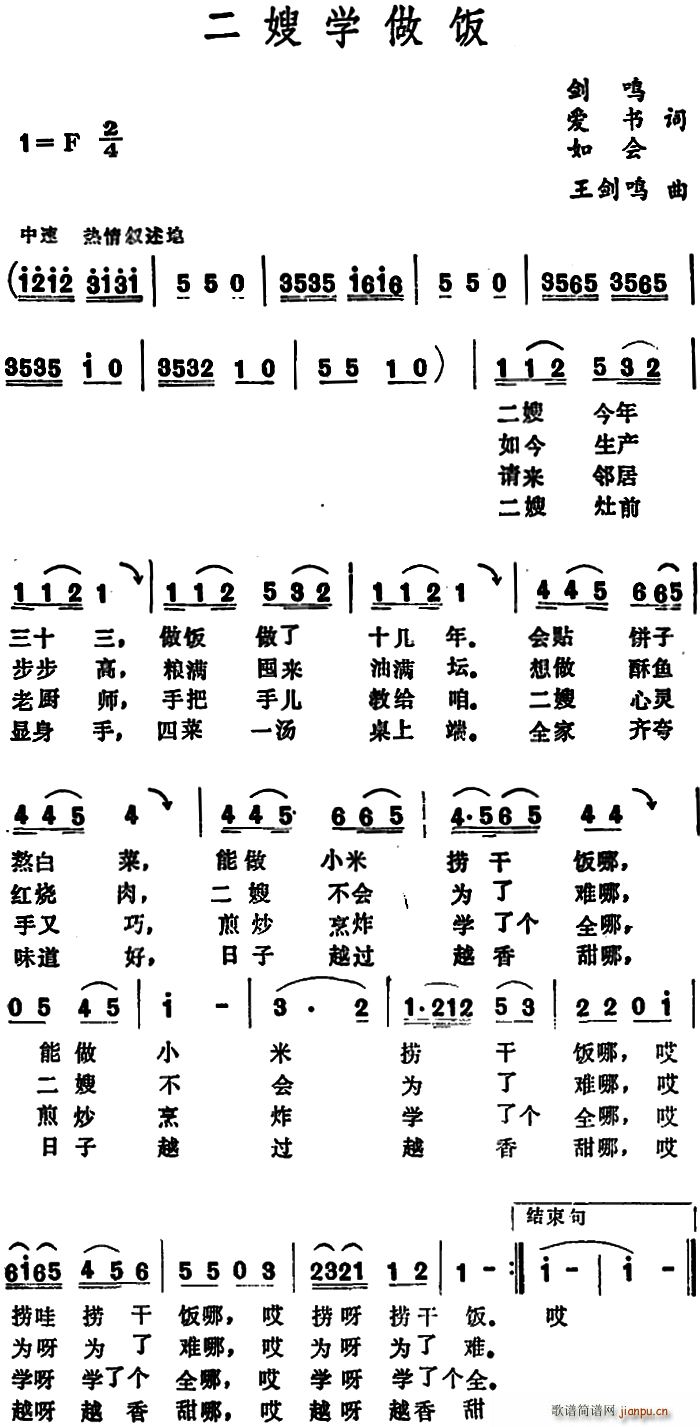 二嫂学做饭
剑 鸣
爱 书 词
如 会
1=F 2/4
王剑鸣 曲
中速 热情叙述地
(i̇2̇i̇2̇ 3̇i̇3̇i̇ | 5 5 0 | 3535 i̇6i̇6 | 5 5 0 | 3565 3565 |
3535 i̇ 0 | 3532 1 0 | 5 5 1 0 ) | 1 1 2 5 3 2 |
二嫂 今年
如今 生产
请来 邻居
二嫂 灶前
1 1 2 1 | 1 1 2 5 3 2 | 1 1 2 1 | 4 4 5 6 6 5 |
三十 三, 做饭 做了 十几 年。 会贴 饼子
步步 高, 粮满 囤来 油满 坛。 想做 酥鱼
老厨 师, 手把 手儿 教给 咱。 二嫂 心灵
显身 手, 四菜 一汤 桌上 端。 全家 齐夸
4 4 5 4 | 4 4 5 6 6 5 | 4·5 6 5 4 4 |
熬白 菜, 能做 小米 捞 干 饭哪,
红烧 肉, 二嫂 不会 为 了 难哪,
手又 巧, 煎炒 烹炸 学 了个 全哪,
味道 好, 日子 越过 越 香 甜哪,
0 5 4 5 | i̇ - | 3 · 2 | 1·212 5 3 | 2 2 0 i̇ |
能 做 小 米 捞 干 饭哪, 哎
二 嫂 不 会 为 了 难哪, 哎
煎 炒 烹 炸 学 了个 全哪, 哎
日 子 越 过 越 香 甜哪, 哎
结束句
6i̇65 4 5 6 | 5 5 0 3 | 2321 1 2 | 1 - :‖ i̇ - | i̇ - ‖
捞哇 捞 干 饭哪, 哎 捞呀 捞干 饭。 哎
为呀 为 了 难哪, 哎 为呀 为了 难。
学呀 学了个 全哪, 哎 学呀 学了个全。
越呀 越 香 甜哪, 哎 越呀 越香 甜
歌谱简谱网
jianpu.cn